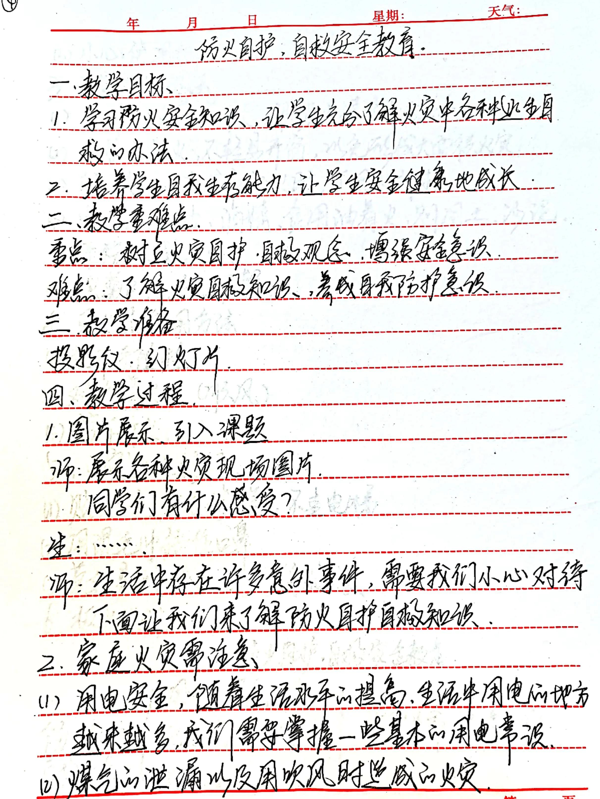 年 月 日 星期: 天气:
防火自护、自救安全教育.
一.教学目标、
1. 学习防火安全知识、让学生充分了解火灾中各种逃生自
救的办法.
2. 培养学生自我生存能力,让学生安全健康地成长.
二、教学重难点.
重点: 树立火灾自护.自救观念、增强安全意识.
难点: 了解火灾自救知识、养成自我防护意识.
三 教学准备
投影仪、幻灯片.
四、教学过程.
1. 图片展示、引入课题
师: 展示各种火灾现场图片.
同学们有什么感受?
生: ……
师: 生活中存在许多意外事件, 需要我们小心对待
下面让我们来了解防火自护自救知识.
2. 家庭火灾需注意
(1) 用电安全, 随着生活水平的提高、生活中用电的地方
越来越多,我们需要掌握一些基本的用电常识.
(2) 煤气的泄漏以及用吹风时造成的火灾.
第 页